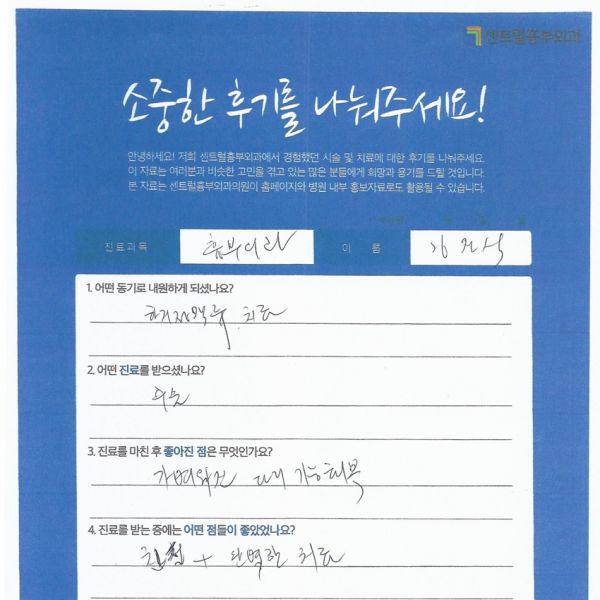 센트럴흉부외과
소중한 후기를 나눠주세요!
안녕하세요! 저희 센트럴흉부외과에서 경험했던 시술 및 치료에 대한 후기를 나눠주세요.
이 자료는 여러분과 비슷한 고민을 겪고 있는 많은 분들에게 희망과 용기를 드릴 것입니다.
본 자료는 센트럴흉부외과의원이 홈페이지와 병원 내부 홍보자료로도 활용될 수 있습니다.
진료과목 흉부외과 이 름
1. 어떤 동기로 내원하게 되셨나요?
하지정맥류 치료
2. 어떤 진료를 받으셨나요?
수술
3. 진료를 마친 후 좋아진 점은 무엇인가요?
가벼워진 다리 기능회복
4. 진료를 받는 중에는 어떤 점들이 좋았었나요?
친절 + 완벽한 치료